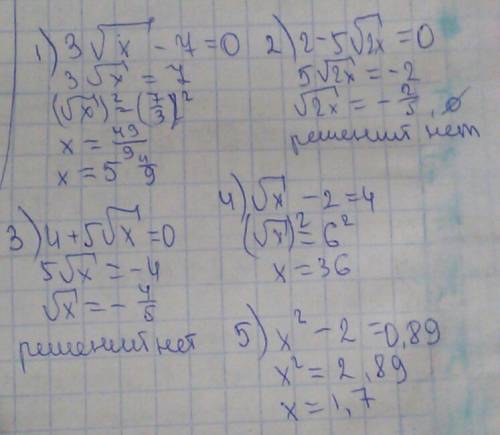 1) 3√x - 7 = 0
3√x = 7
(√x)² = (7/3)²
x = 49/9
x = 5 4/9
2) 2 - 5√2x = 0
5√2x = -2
√2x = - 2/5, ∅
решений нет
3) 4 + 5√x = 0
5√x = -4
√x = - 4/5
решений нет
4) √x - 2 = 4
(√x)² = 6²
x = 36
5) x² - 2 = 0,89
x² = 2,89
x = 1,7